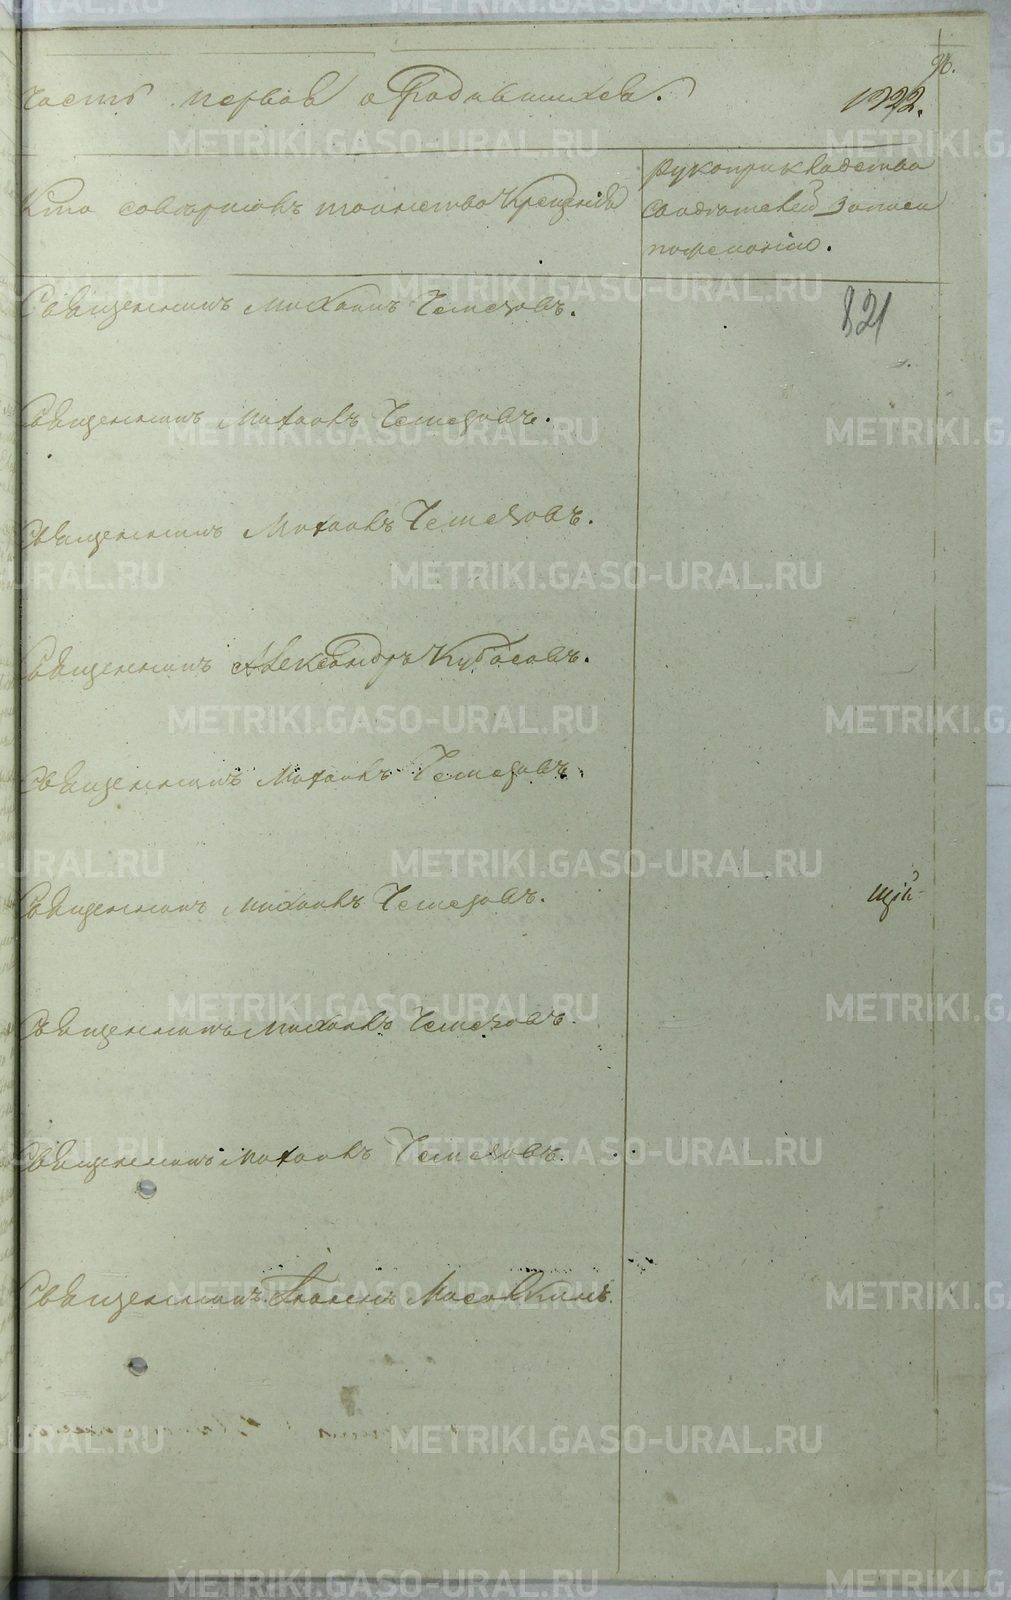 96.
Часть первая о Родившихся.
1722.
Кто совершилъ таинство Крещенія
Рукоприкладство
свидѣтелей записи
по желанію.
Священникъ Михаилъ Чемезовъ.
821
Священникъ Михаилъ Чемезовъ.
Священникъ Михаилъ Чемезовъ.
Священникъ Александръ Кубасовъ.
Священникъ Михаилъ Чемезовъ.
Священникъ Михаилъ Чемезовъ.
щій
Священникъ Михаилъ Чемезовъ.
Священникъ Михаилъ Чемезовъ.
Священникъ
METRIKI.GASO-URAL.RU